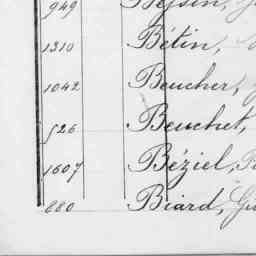 949
1310 Bétin,
1042 Beucher,
526 Beuchet,
1607 Béziel,
880 Biard,